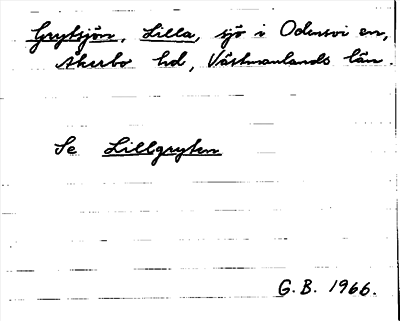 Grytsjön, Lilla, sjö i Odensvi sn,
Åkerbo hd, Västmanlands län.
Se Lillgryten
G. B. 1966.